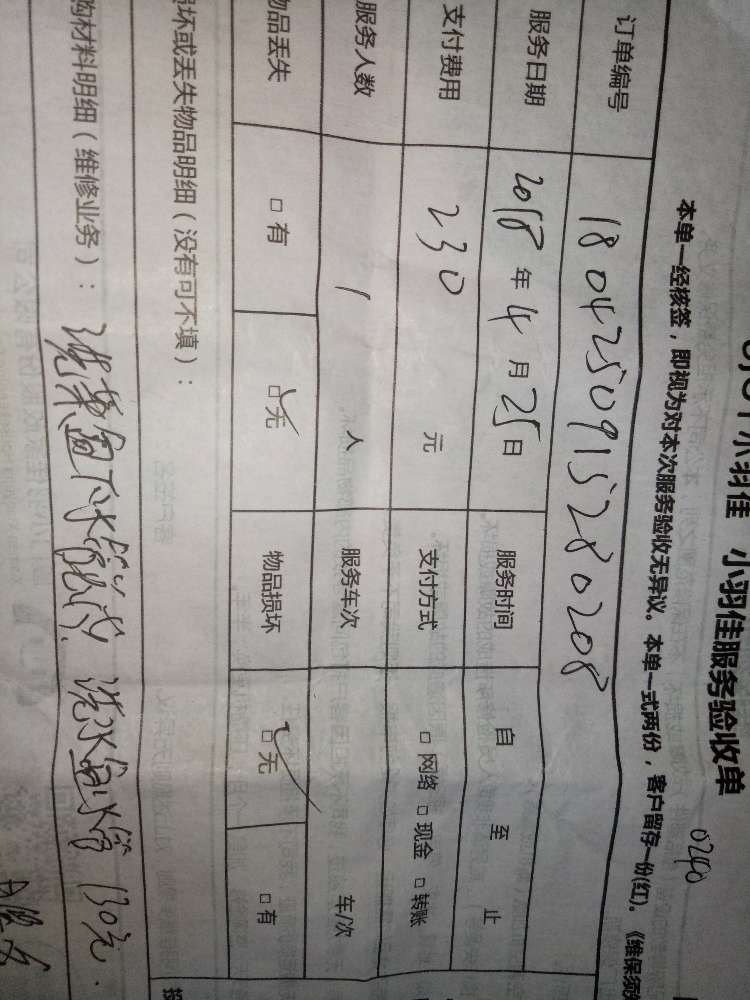 小羽佳 小羽佳服务验收单
0240
本单一经核签，即视为对本次服务验收无异议。本单一式两份，客户留存一份(红)。《维保须
订单编号 1804250915280208
服务日期 2018年4月25日 服务时间 自 至 止
支付费用 230 元 支付方式 □网络 □现金 □转账
服务人数 1 人 服务车次 车/次
物品丢失 □有 □无 物品损坏 □无 □有
损坏或丢失物品明细（没有可不填）：
购材料明细（维修业务）： 洗菜盆下水 洗水盆水管 130元.